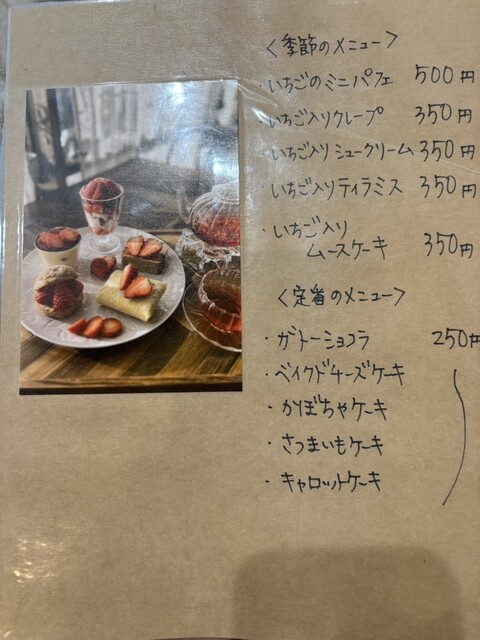 〈季節のメニュー〉
いちごのミニパフェ 500円
いちご入りクレープ 350円
・いちご入りシュークリーム 350円
・いちご入りティラミス 350円
・いちご入り
ムースケーキ 350円
〈定番のメニュー〉
・ガトーショコラ 250円
・ベイクドチーズケーキ
・かぼちゃケーキ
・さつまいもケーキ
・キャロットケーキ